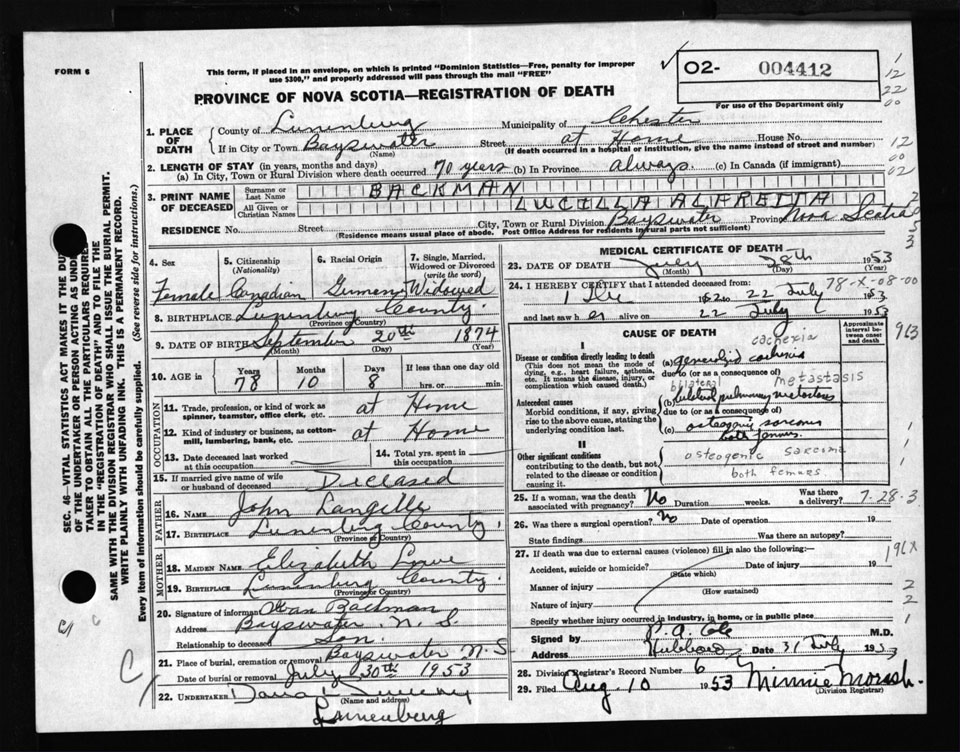 FORM 6
This form, if placed in an envelope, on which is printed "Dominion Statistics—Free, penalty for improper
use $300," and properly addressed will pass through the mail "FREE"
PROVINCE OF NOVA SCOTIA—REGISTRATION OF DEATH
✓ O2- 004412
For use of the Department only
1
12
22
00
12
00
02
1. PLACE OF DEATH
County of Lunenburg Municipality of Chester
If in City or Town Bayswater Street at Home House No.
(Name) (If death occurred in a hospital or institution, give the name instead of street and number)
2. LENGTH OF STAY (in years, months and days)
(a) In City, Town or Rural Division where death occurred 70 years (b) In Province always. (c) In Canada (if immigrant)
3. PRINT NAME OF DECEASED
Surname or Last Name BACKMAN
All Given or Christian Names LUCILLA ALFRETTA
RESIDENCE No. Street City, Town or Rural Division Bayswater Province Nova Scotia
(Residence means usual place of abode. Post Office Address for residents in rural parts not sufficient)
4. Sex
Female
5. Citizenship
(Nationality)
Canadian
6. Racial Origin
German
7. Single, Married,
Widowed or Divorced
(write the word)
Widowed
8. BIRTHPLACE Lunenburg County.
(Province or Country)
9. DATE OF BIRTH September 20th 1874
(Month) (Day) (Year)
10. AGE in
Years Months Days If less than one day old
78 10 8 hrs. or min.
OCCUPATION
11. Trade, profession, or kind of work as
spinner, teamster, office clerk, etc. at Home
12. Kind of industry or business, as cotton-
mill, lumbering, bank, etc. at Home
13. Date deceased last worked
at this occupation
14. Total yrs. spent in
this occupation
15. If married give name of wife
or husband of deceased Deceased
FATHER
16. NAME John Langille
17. BIRTHPLACE Lunenburg County,
(Province or Country)
MOTHER
18. MAIDEN NAME Elizabeth
19. BIRTHPLACE Lunenburg County.
(Province or Country)
20. Signature of informant Backman
Address Bayswater N. S.
Relationship to deceased Son.
21. Place of burial, cremation or removal Bayswater N. S
Date of burial or removal July 30th 1953
22. UNDERTAKER
(Name and address)
Lunenburg
SEC. 46—VITAL STATISTICS ACT MAKES IT THE DU
OF THE UNDERTAKER OR PERSON ACTING AS UND
TAKER TO OBTAIN ALL THE PARTICULARS REQUIRE
IN THE "REGISTRATION OF DEATH" AND TO FILE THE
SAME WITH THE DIVISION REGISTRAR WHO SHALL ISSUE THE BURIAL PERMIT.
WRITE PLAINLY WITH UNFADING INK. THIS IS A PERMANENT RECORD.
Every item of information should be carefully supplied. (See reverse side for instructions.)
MEDICAL CERTIFICATE OF DEATH
23. DATE OF DEATH July 28th 1953
(Month) (Day)
24. I HEREBY CERTIFY that I attended deceased from: 78-X-08-00
1 Dec 1952 to 22 July 1953
and last saw her alive on 22 July 1953
CAUSE OF DEATH
Approximate interval between onset and death
963
I
Disease or condition directly leading to death
(This does not mean the mode of
dying, e.g., heart failure, asthenia,
etc. It means the disease, injury, or
complication which caused death.)
cachexia
(a) generalized cachexia
due to (or as a consequence of)
bilateral metastasis
Antecedent causes
Morbid conditions, if any, giving
rise to the above cause, stating the
underlying condition last.
(b) bilateral pulmonary metastases
due to (or as a consequence of)
(c) osteogenic sarcoma
both femurs.
II
Other significant conditions
contributing to the death, but not
related to the disease or condition
causing it.
osteogenic sarcoma
both femurs
25. If a woman, was the death
associated with pregnancy? No Duration weeks. Was there
a delivery? 7-28-3
26. Was there a surgical operation? No Date of operation 19
State findings Was there an autopsy?
27. If death was due to external causes (violence) fill in also the following:—
196X
Accident, suicide or homicide? Date of injury 19
(State which)
Manner of injury
(How sustained)
Nature of injury
Specify whether injury occurred in industry, in home, or in public place
Signed by P. A. Cole M.D.
Address Hubbards Date 31 July 1953
28. Division Registrar's Record Number 6
29. Filed Aug. 10 1953 Minnie
(Division Registrar)